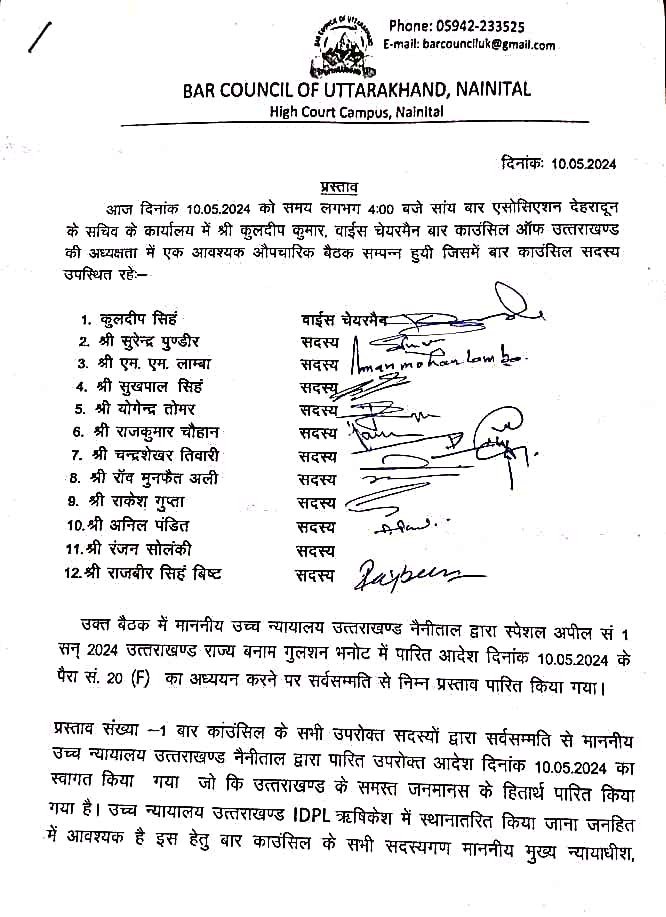 BAR COUNCIL OF UTTARAKHAND
Phone: 05942-233525
E-mail: barcounciluk@gmail.com
BAR COUNCIL OF UTTARAKHAND, NAINITAL
High Court Campus, Nainital
दिनांकः 10.05.2024
प्रस्ताव
आज दिनांक 10.05.2024 को समय लगभग 4:00 बजे सांय बार एसोसिएशन देहरादून
के सचिव के कार्यालय में श्री कुलदीप कुमार, वाईस चेयरमैन बार काउंसिल ऑफ उत्तराखण्ड
की अध्यक्षता में एक आवश्यक औपचारिक बैठक सम्पन्न हुयी जिसमें बार काउंसिल सदस्य
उपस्थित रहेः–
1. कुलदीप सिहं वाईस चेयरमैन
2. श्री सुरेन्द्र पुण्डीर सदस्य
3. श्री एम. एम. लाम्बा सदस्य Manmohan Lamba.
4. श्री सुखपाल सिहं सदस्य
5. श्री योगेन्द्र तोमर सदस्य
6. श्री राजकुमार चौहान सदस्य
7. श्री चन्द्रशेखर तिवारी सदस्य
8. श्री रॉव मुनफैत अली सदस्य
9. श्री राकेश गुप्ता सदस्य
10. श्री अनिल पंडित सदस्य
11. श्री रंजन सोलंकी सदस्य
12. श्री राजबीर सिहं बिष्ट सदस्य
उक्त बैठक में माननीय उच्च न्यायालय उत्तराखण्ड नैनीताल द्वारा स्पेशल अपील सं 1
सन् 2024 उत्तराखण्ड राज्य बनाम गुलशन भनोट में पारित आदेश दिनांक 10.05.2024 के
पैरा सं. 20 (F) का अध्ययन करने पर सर्वसम्मति से निम्न प्रस्ताव पारित किया गया।
प्रस्ताव संख्या –1 बार कांउसिल के सभी उपरोक्त सदस्यों द्वारा सर्वसम्मति से माननीय
उच्च न्यायालय उत्तराखण्ड नैनीताल द्वारा पारित उपरोक्त आदेश दिनांक 10.05.2024 का
स्वागत किया गया जो कि उत्तराखण्ड के समस्त जनमानस के हितार्थ पारित किया
गया है। उच्च न्यायालय उत्तराखण्ड IDPL ऋषिकेश में स्थानातरित किया जाना जनहित
में आवश्यक है इस हेतु बार काउंसिल के सभी सदस्यगण माननीय मुख्य न्यायाधीश,